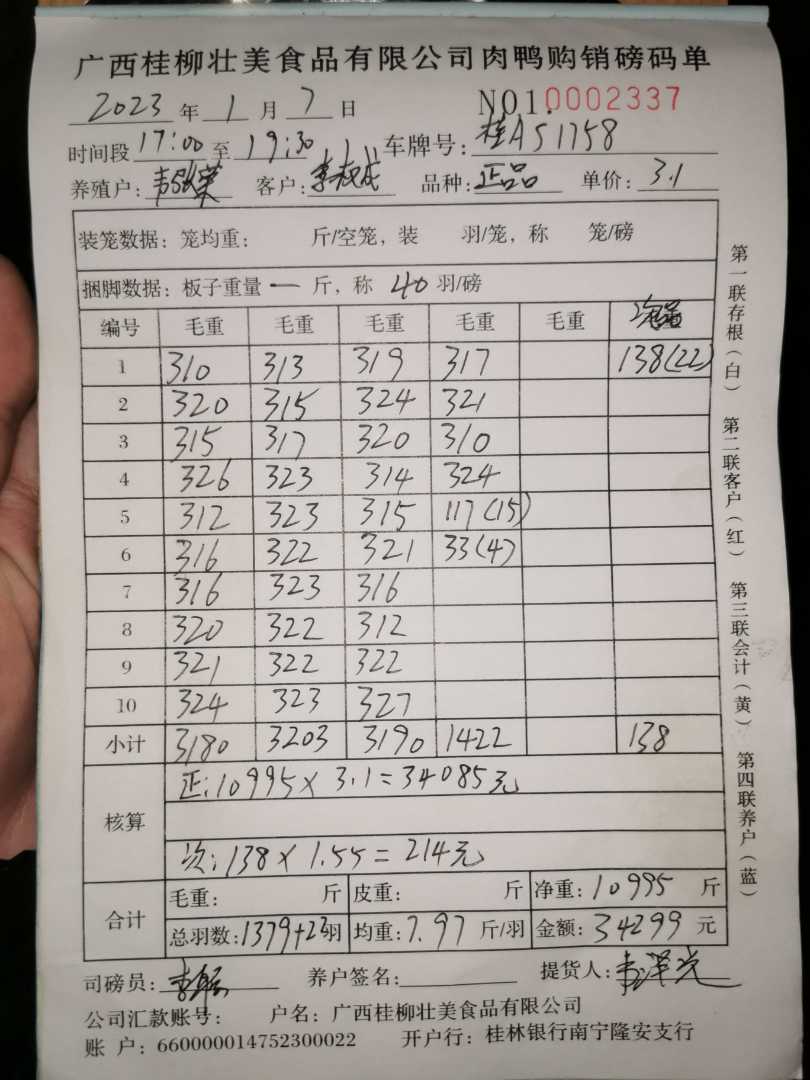 广西桂柳壮美食品有限公司肉鸭购销磅码单
2023 年 1 月 7 日 NO1.0002337
时间段 17:00 至 19:30 车牌号: 桂AS1758
养殖户: 客户: 李权成 品种: 正品 单价: 3.1
装笼数据: 笼均重: 斤/空笼, 装 羽/笼, 称 笼/磅
捆脚数据: 板子重量 一 斤, 称 40 羽/磅
编号 毛重 毛重 毛重 毛重 毛重 次品
1 310 313 319 317 138(22)
2 320 315 324 321
3 315 317 320 310
4 326 323 314 324
5 312 323 315 117(15)
6 316 322 321 33(4)
7 316 323 316
8 320 322 312
9 321 322 322
10 324 323 327
小计 3180 3203 3190 1422 138
核算 正:10995×3.1=34085元
次:138×1.55=214元
合计 毛重: 斤 皮重: 斤 净重: 10995 斤
总羽数: 1379+23羽 均重: 7.97 斤/羽 金额: 34299 元
司磅员: 养户签名: 提货人: 韦泽光
公司汇款账号: 户名: 广西桂柳壮美食品有限公司
账 户: 660000014752300022 开户行: 桂林银行南宁隆安支行
第一联存根(白) 第二联客户(红) 第三联会计(黄) 第四联养户(蓝)